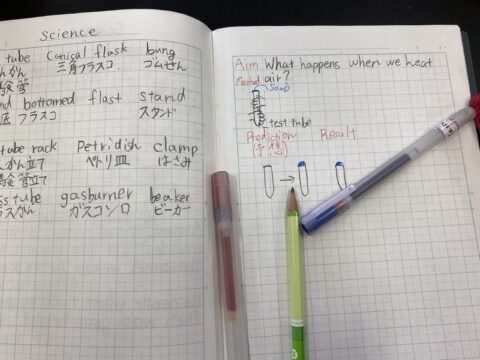 Science
tube Conical flask bung
三角フラスコ ゴムせん
bottomed flast stand
フラスコ スタンド
tube rack Petridish clamp
立て ペトリ皿 はさみ
管立て
tube gasburner beaker
ガスコンロ ビーカー
Aim What happens when we heat
air?
Soap
test tube
Prediction Result
(予想)